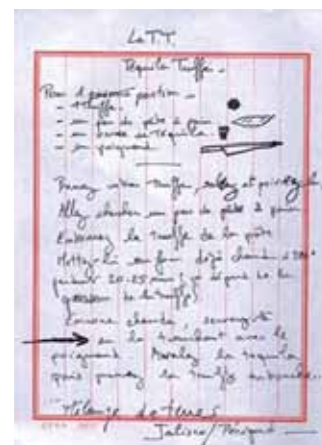 La T.T.
Tequila Truffe -
Pour 1 portion -
- 1 truffe.
- un peu de pâte à pain
- un verre de tequila
- un poignard.
Prenez votre truffe, salez et poivrez la
Allez chercher un peu de pâte à pain
Enfermez la truffe de la pâte
Mettez-la au four déjà chaud à
pendant 20-25 min (ça dépend de la
grosseur de la truffe)
Encore chaude, ouvrez
en la tranchant avec le
poignard. Avalez la tequila
puis prenez la truffe en bouche..
Mélange de terres
Jalisco / Périgord -